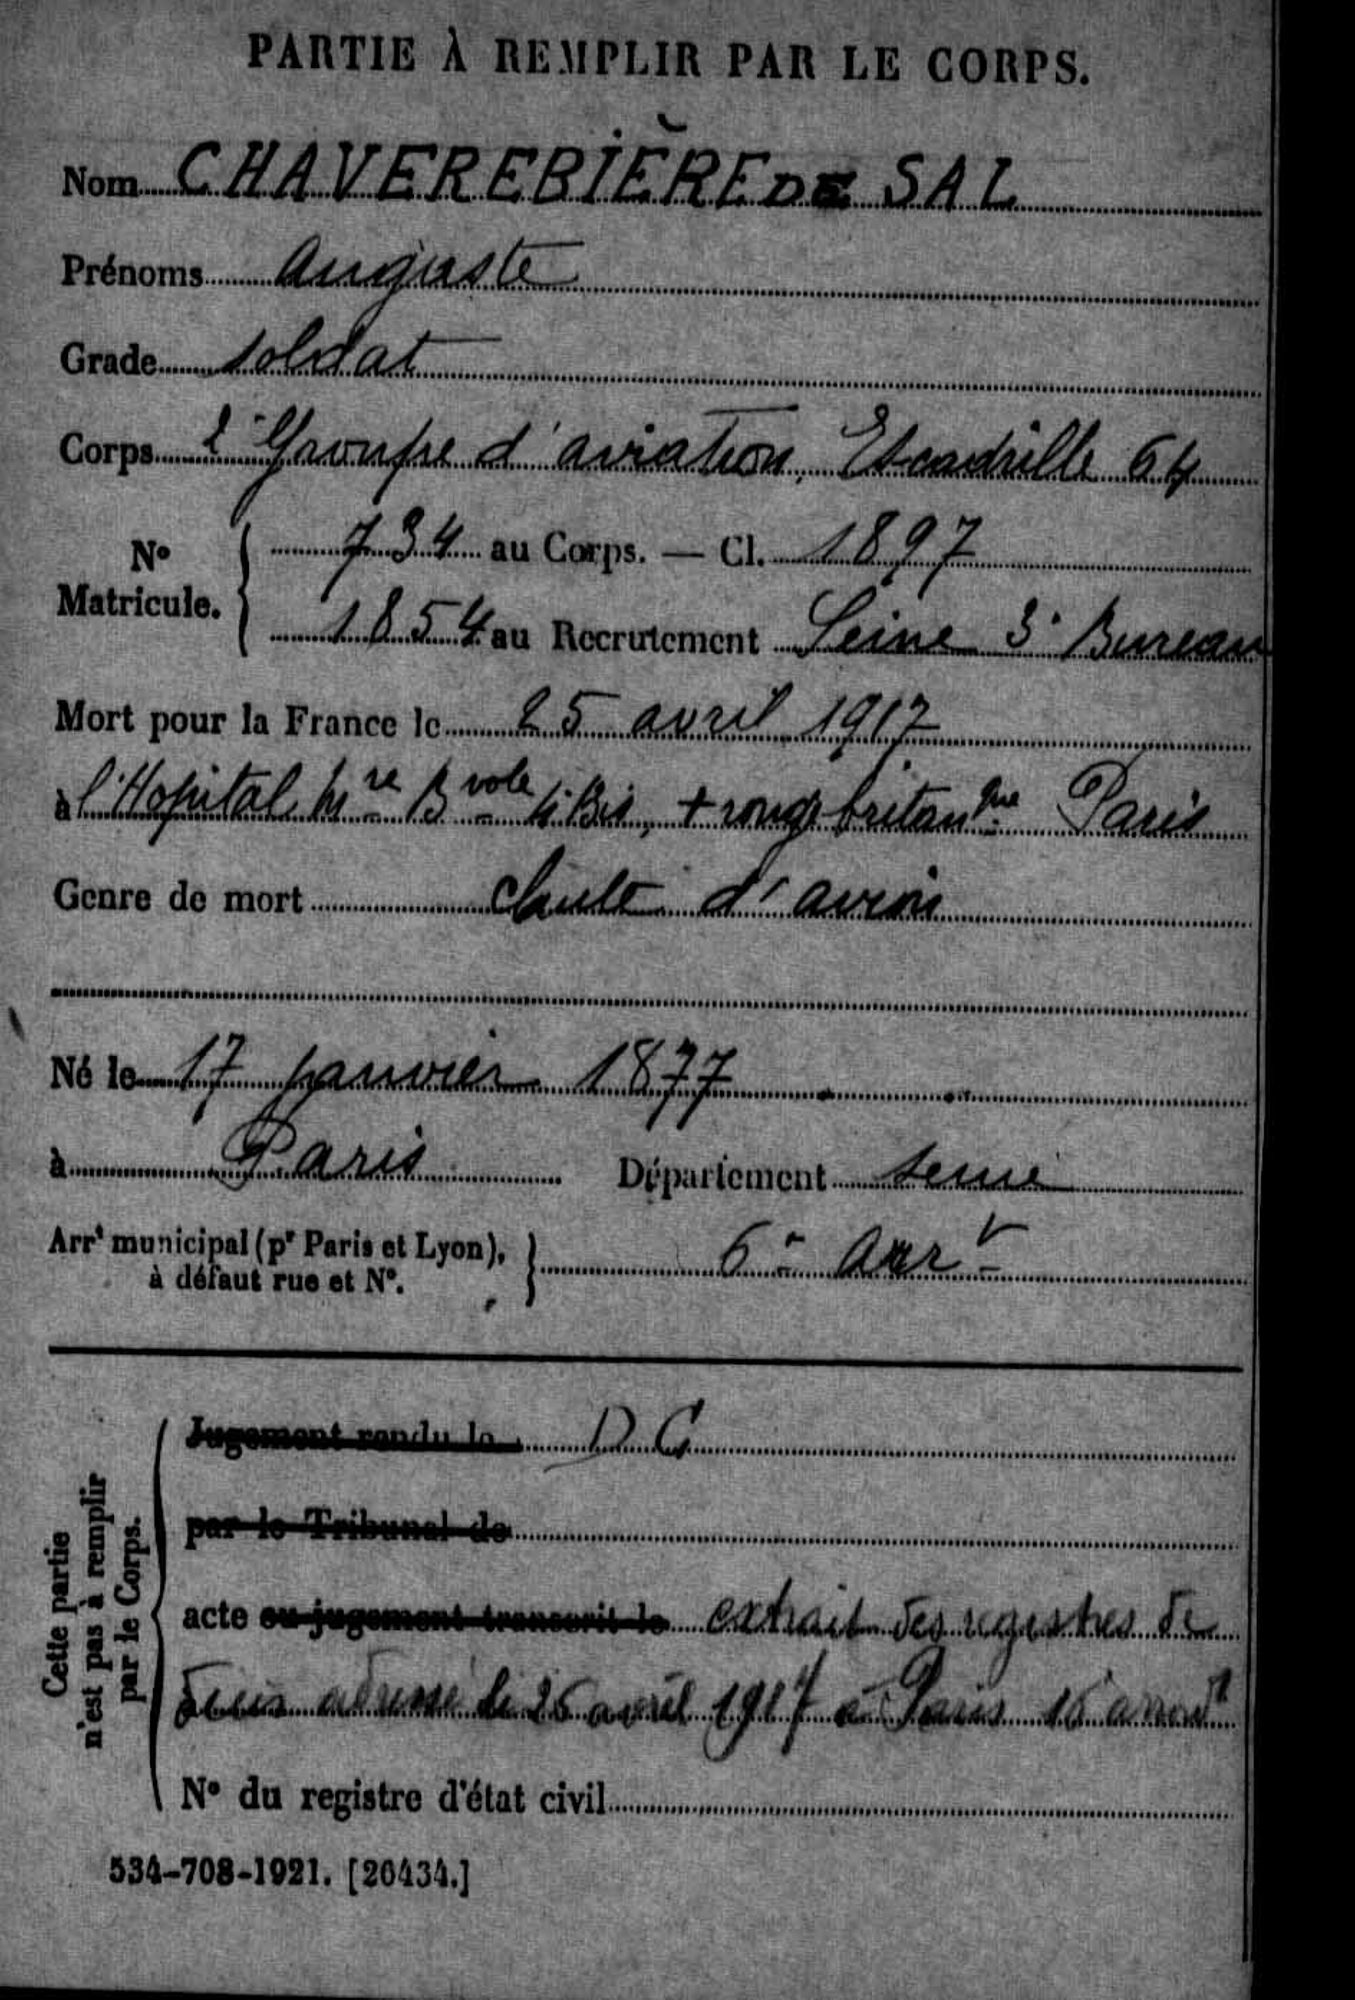 PARTIE À REMPLIR PAR LE CORPS.
Nom CHAVEREBIÈRE DE SAL
Prénoms Auguste
Grade soldat
Corps 2e Groupe d'aviation, Escadrille 64
No Matricule. 734 au Corps. — Cl. 1897
1854 au Recrutement Seine 3e Bureau
Mort pour la France le 25 avril 1917
à l'Hopital Mre Bvole 4 Bis, + rouge britanque Paris
Genre de mort chute d'avion
Né le 17 janvier 1877
à Paris Département Seine
Arrt municipal (pr Paris et Lyon), à défaut rue et No. 6e Arrt
Cette partie n'est pas à remplir par le Corps.
Jugement rendu le D C
par le Tribunal de
acte ou jugement transcrit le extrait des registres de
décès adressé le 26 avril 1917 à Paris 16 arrondt
No du registre d'état civil
534-708-1921. [26434.]